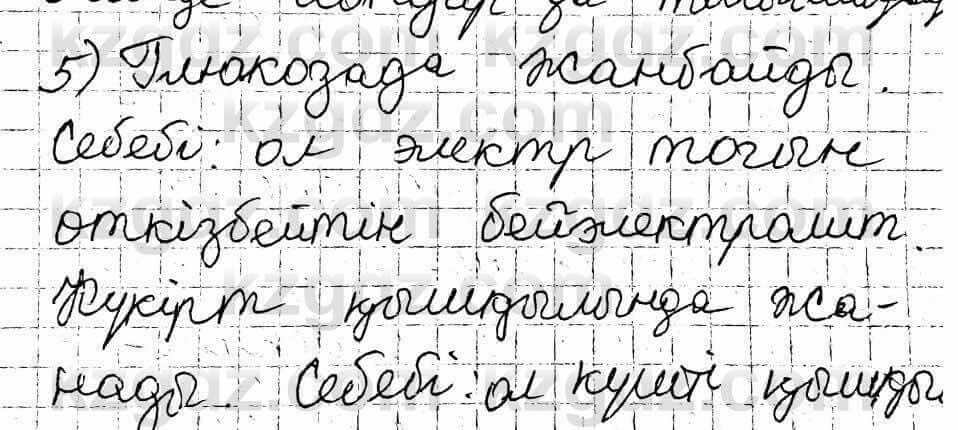 5) Глюкозада жанбайды.
Себебі: ол электр тогын
өткізбейтін бейэлектролит.
Күкірт қышқылында жа-
нады. Себебі: ол күшті қышқыл